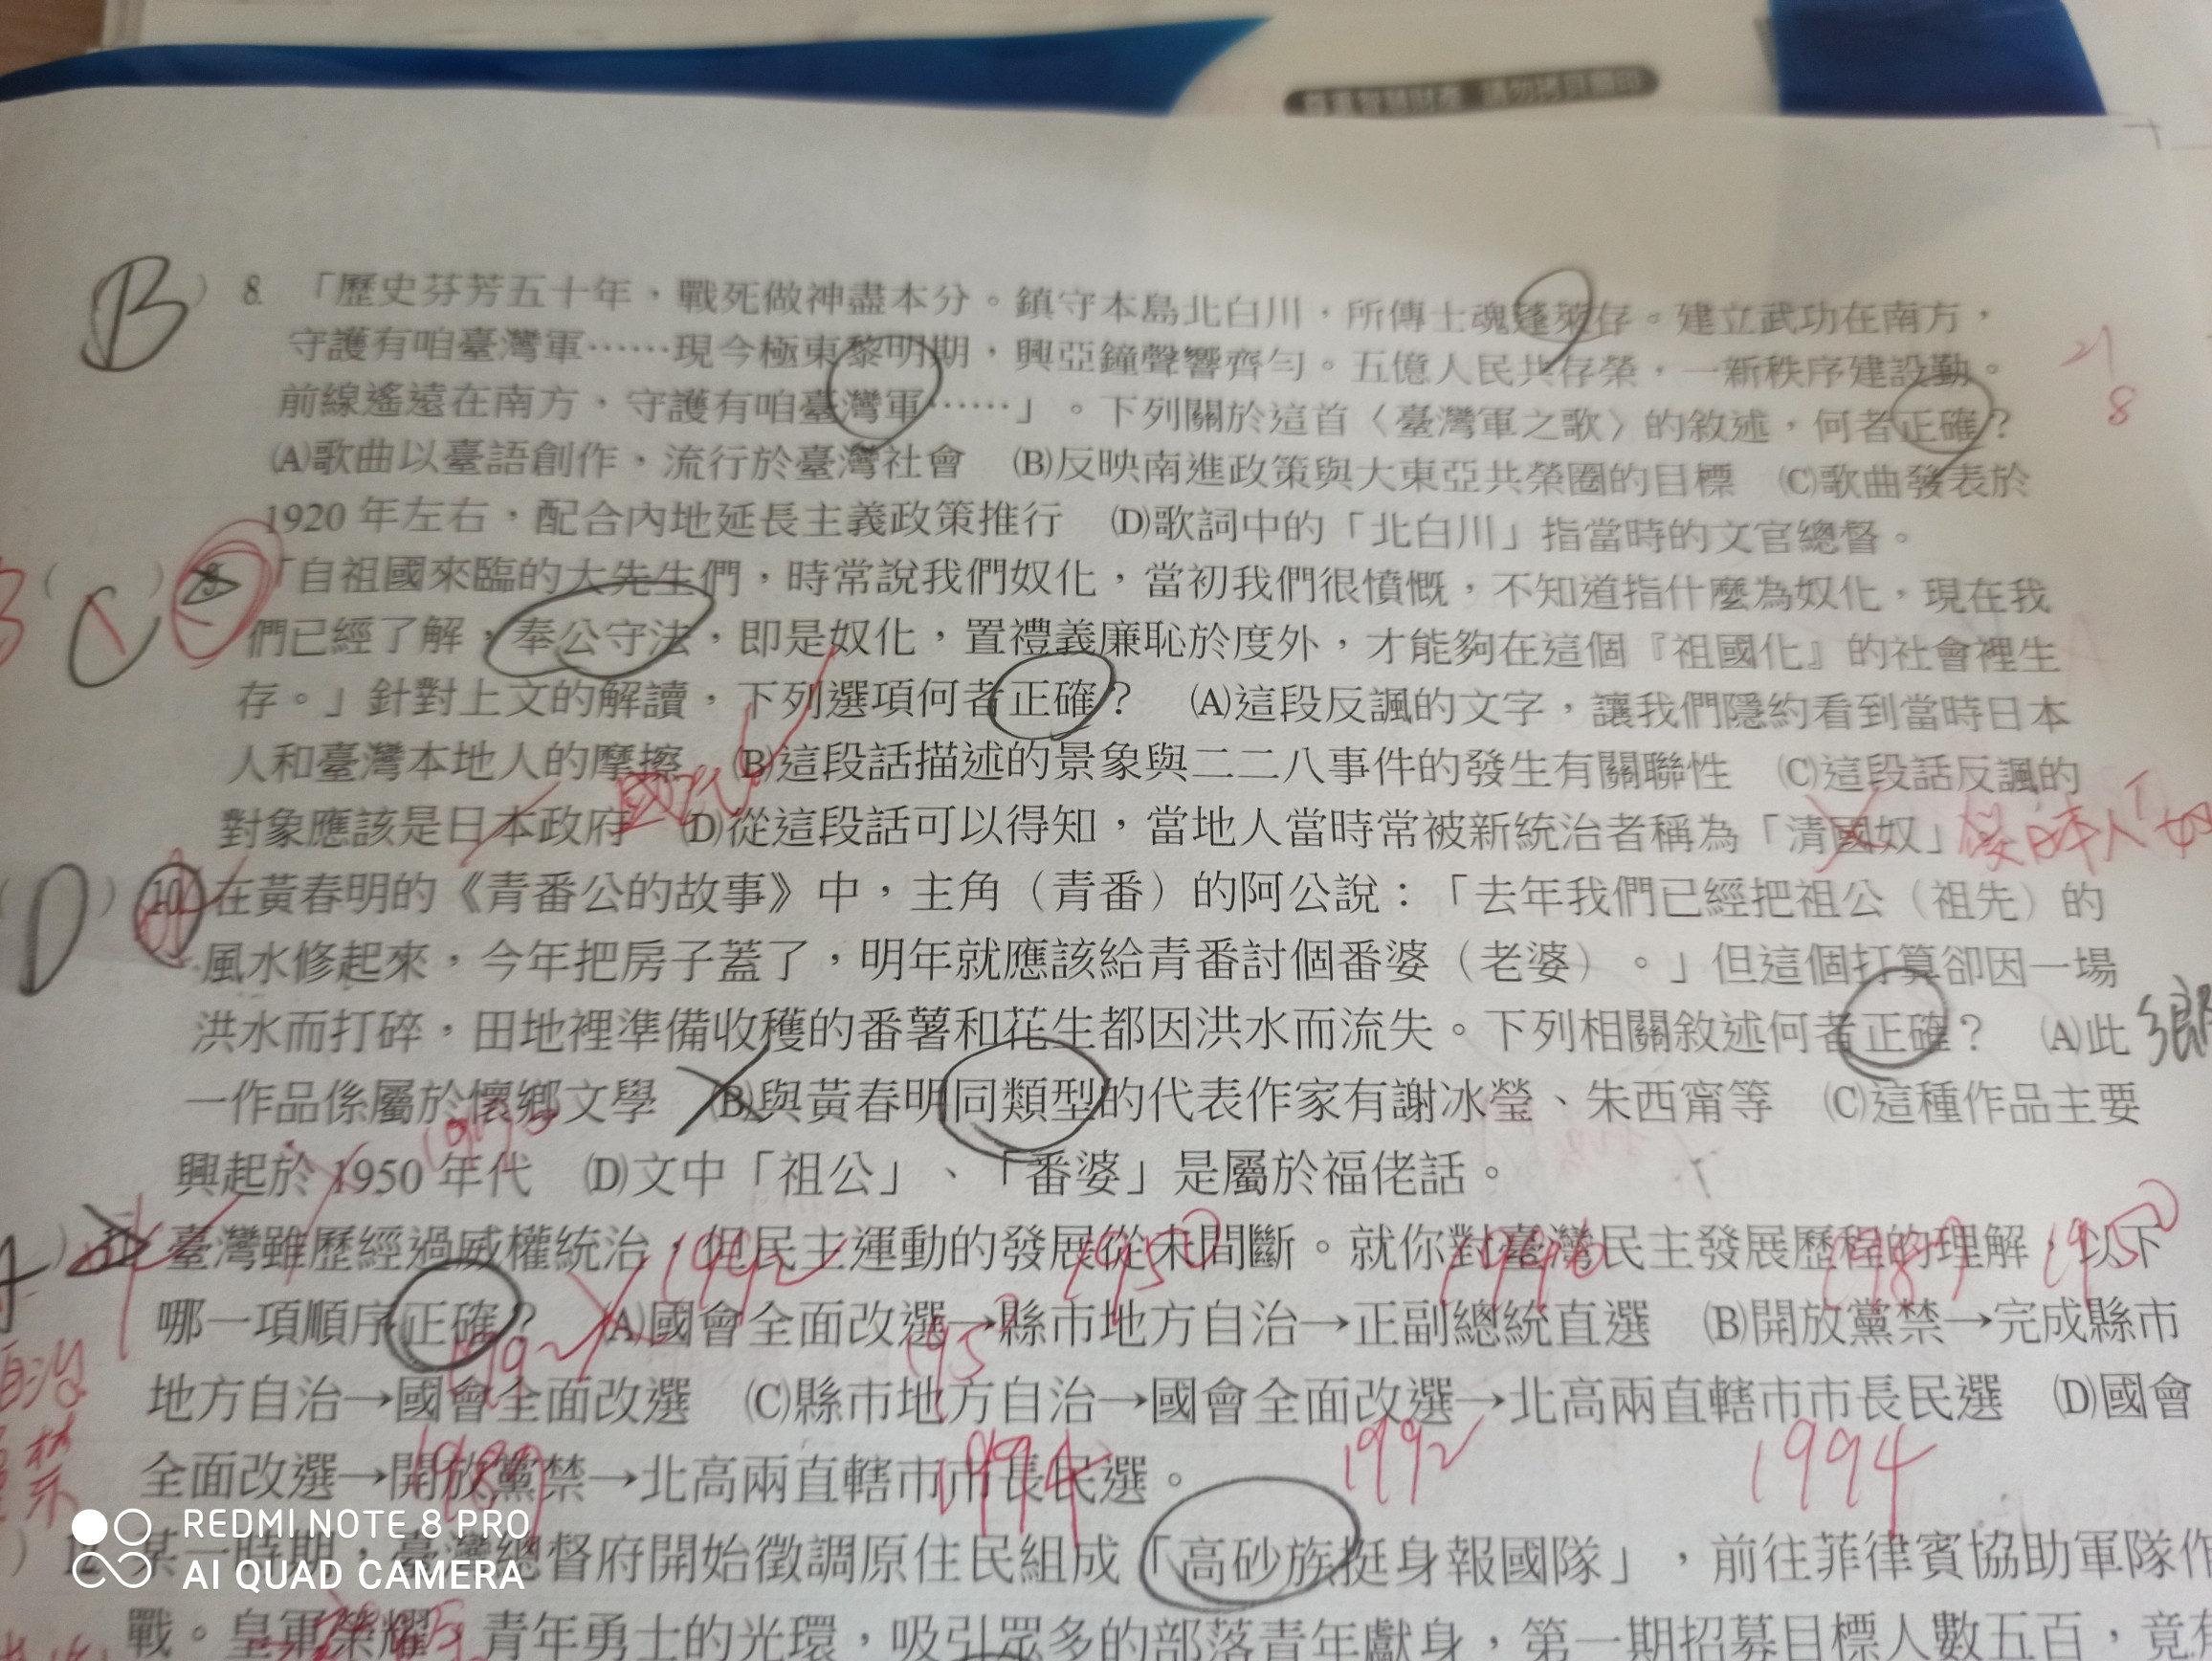 B
) 8. 「歷史芬芳五十年，戰死做神盡本分。鎮守本島北白川，所傳士魂蓬萊存。建立武功在南方，
守護有咱臺灣軍……現今極東黎明期，興亞鐘聲響齊勻。五億人民共存榮，一新秩序建設勤。
前線遙遠在南方，守護有咱臺灣軍……」。下列關於這首〈臺灣軍之歌〉的敘述，何者正確？
(A)歌曲以臺語創作，流行於臺灣社會　(B)反映南進政策與大東亞共榮圈的目標　(C)歌曲發表於
1920 年左右，配合內地延長主義政策推行　(D)歌詞中的「北白川」指當時的文官總督。
( C ) 「自祖國來臨的大先生們，時常說我們奴化，當初我們很憤慨，不知道指什麼為奴化，現在我
們已經了解，奉公守法，即是奴化，置禮義廉恥於度外，才能夠在這個『祖國化』的社會裡生
存。」針對上文的解讀，下列選項何者正確？　(A)這段反諷的文字，讓我們隱約看到當時日本
人和臺灣本地人的摩擦　(B)這段話描述的景象與二二八事件的發生有關聯性　(C)這段話反諷的
對象應該是日本政府　(D)從這段話可以得知，當地人當時常被新統治者稱為「清國奴」
( D ) 10. 在黃春明的《青番公的故事》中，主角（青番）的阿公說：「去年我們已經把祖公（祖先）的
風水修起來，今年把房子蓋了，明年就應該給青番討個番婆（老婆）。」但這個打算卻因一場
洪水而打碎，田地裡準備收穫的番薯和花生都因洪水而流失。下列相關敘述何者正確？　(A)此
鄉
一作品係屬於懷鄉文學　(B)與黃春明同類型的代表作家有謝冰瑩、朱西甯等　(C)這種作品主要
興起於 1950 年代　(D)文中「祖公」、「番婆」是屬於福佬話。
) 臺灣雖歷經過威權統治，但民主運動的發展從未間斷。就你對臺灣民主發展歷程的理解，以下
1992 1950 1996 1987 1950
哪一項順序正確？　(A)國會全面改選→縣市地方自治→正副總統直選　(B)開放黨禁→完成縣市
1992 1950
地方自治→國會全面改選　(C)縣市地方自治→國會全面改選→北高兩直轄市市長民選　(D)國會
1987 1994 1992 1994
全面改選→開放黨禁→北高兩直轄市市長民選。
自治
) 12. 某一時期，臺灣總督府開始徵調原住民組成「高砂族挺身報國隊」，前往菲律賓協助軍隊作
戰。皇軍榮耀、青年勇士的光環，吸引眾多的部落青年獻身，第一期招募目標人數五百，竟有
REDMI NOTE 8 PRO
AI QUAD CAMERA